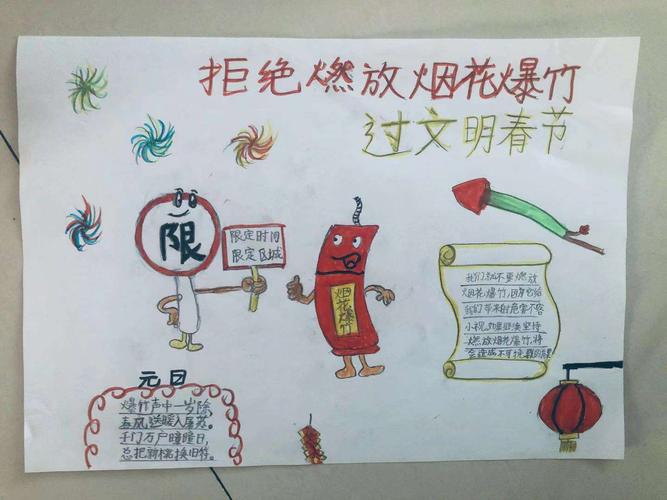 拒绝燃放烟花爆竹
过文明春节
限
限定时间
限定区域
烟花爆竹
我们就不要燃放
烟花爆竹,因为它给
我们带来的危害不容
小视,如果继续坚持
燃放烟花爆竹,将
会造成不可挽
元日
爆竹声中一岁除,
春风送暖入屠苏。
千门万户曈曈日,
总把新桃换旧符。